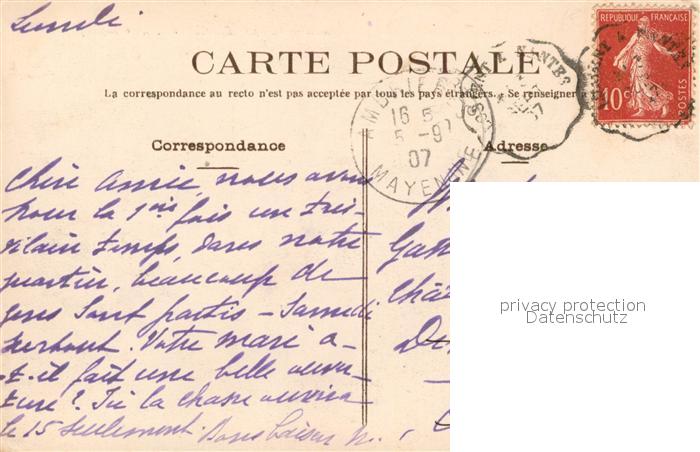 Lundi
CARTE POSTALE
La correspondance au recto n'est pas acceptée par tous les pays étrangers. Se renseigner à
RÉPUBLIQUE FRANÇAISE
10c
POSTES
16
5 -9
07
MAYENNE
Correspondance
Adresse
Chère amie, nous avons
pour la 1re fois un très
vilain temps, dans notre
quartier, beaucoup de
gens sont partis - Samedi
surtout. Votre mari a-
t-il fait une belle ouver-
ture? Ici la chasse ouvrira
le 15 seulement. Bons baisers
Châ
privacy protection
Datenschutz